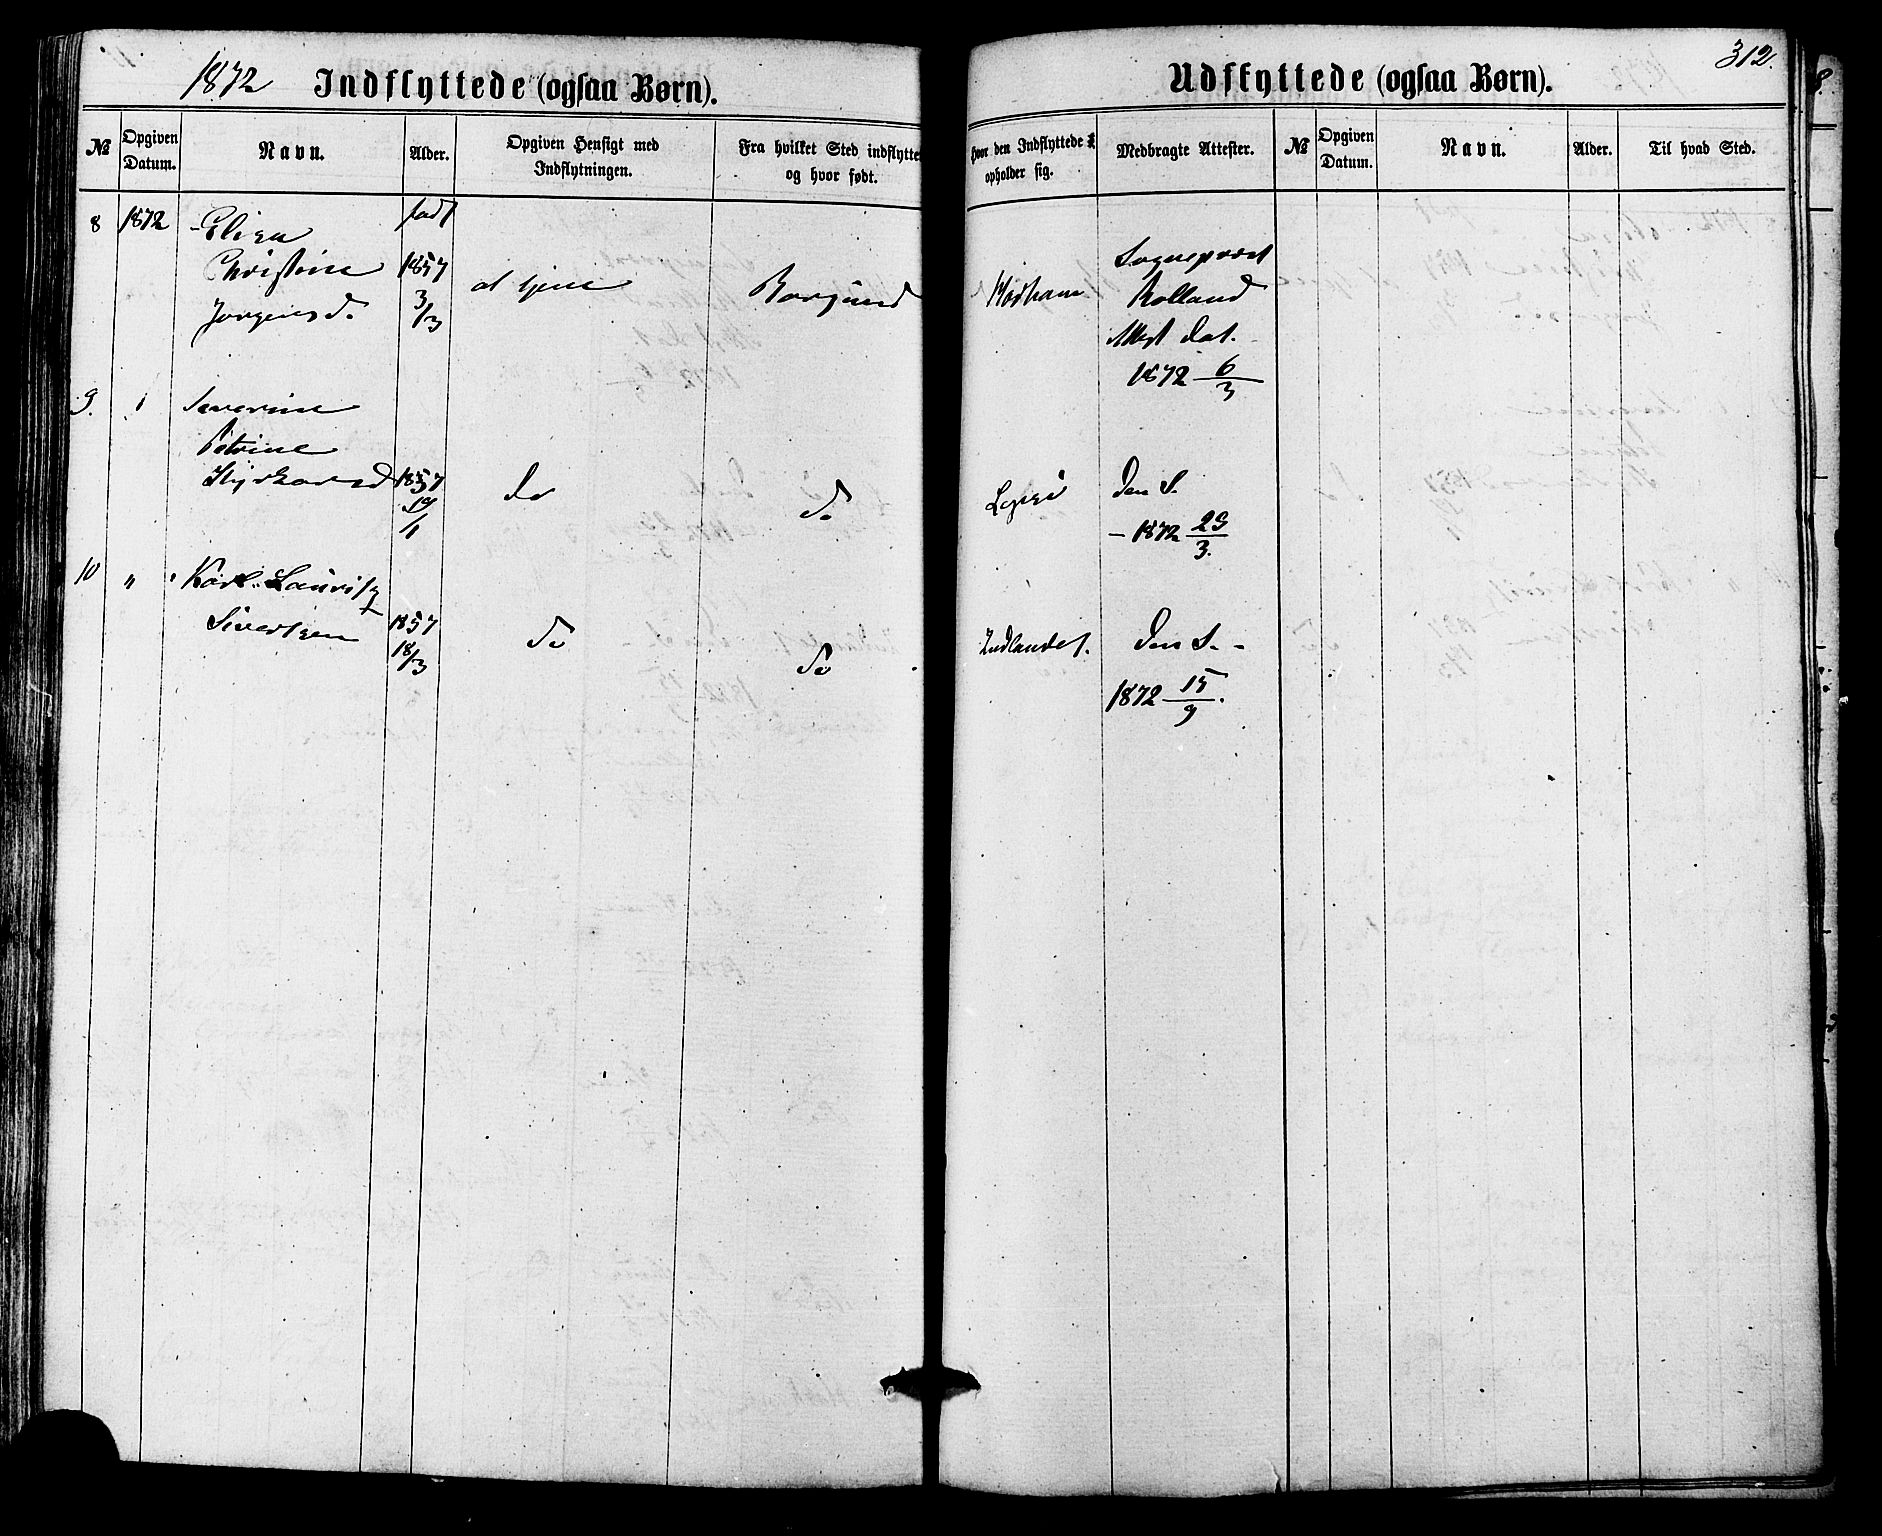 1872 Indflyttede (ogsaa Børn).
№
Opgiven Datum.
Navn.
Alder.
Opgiven Hensigt med Indflytningen.
Fra hvilket Sted indflyttet og hvor født.
8 1872 Elisa født
Christine 1857
Jørgensd. 3/3
at tjene
Borgund
9.
Severine
Petrine
1857
19/1
do
do
10 " Karl Lauritz
Sivertsen 1857
18/3
do
do
312.
Udflyttede (ogsaa Børn).
Hvor den Indflyttede opholder sig.
Medbragte Attester.
№
Opgiven Datum.
Navn.
Alder.
Til hvad Sted.
Sogneprest
Rolland
Attest dat.
1872 6/3
Den S.
– 1872 23/3.
Indlandet.
Den S. -
1872 15/9.